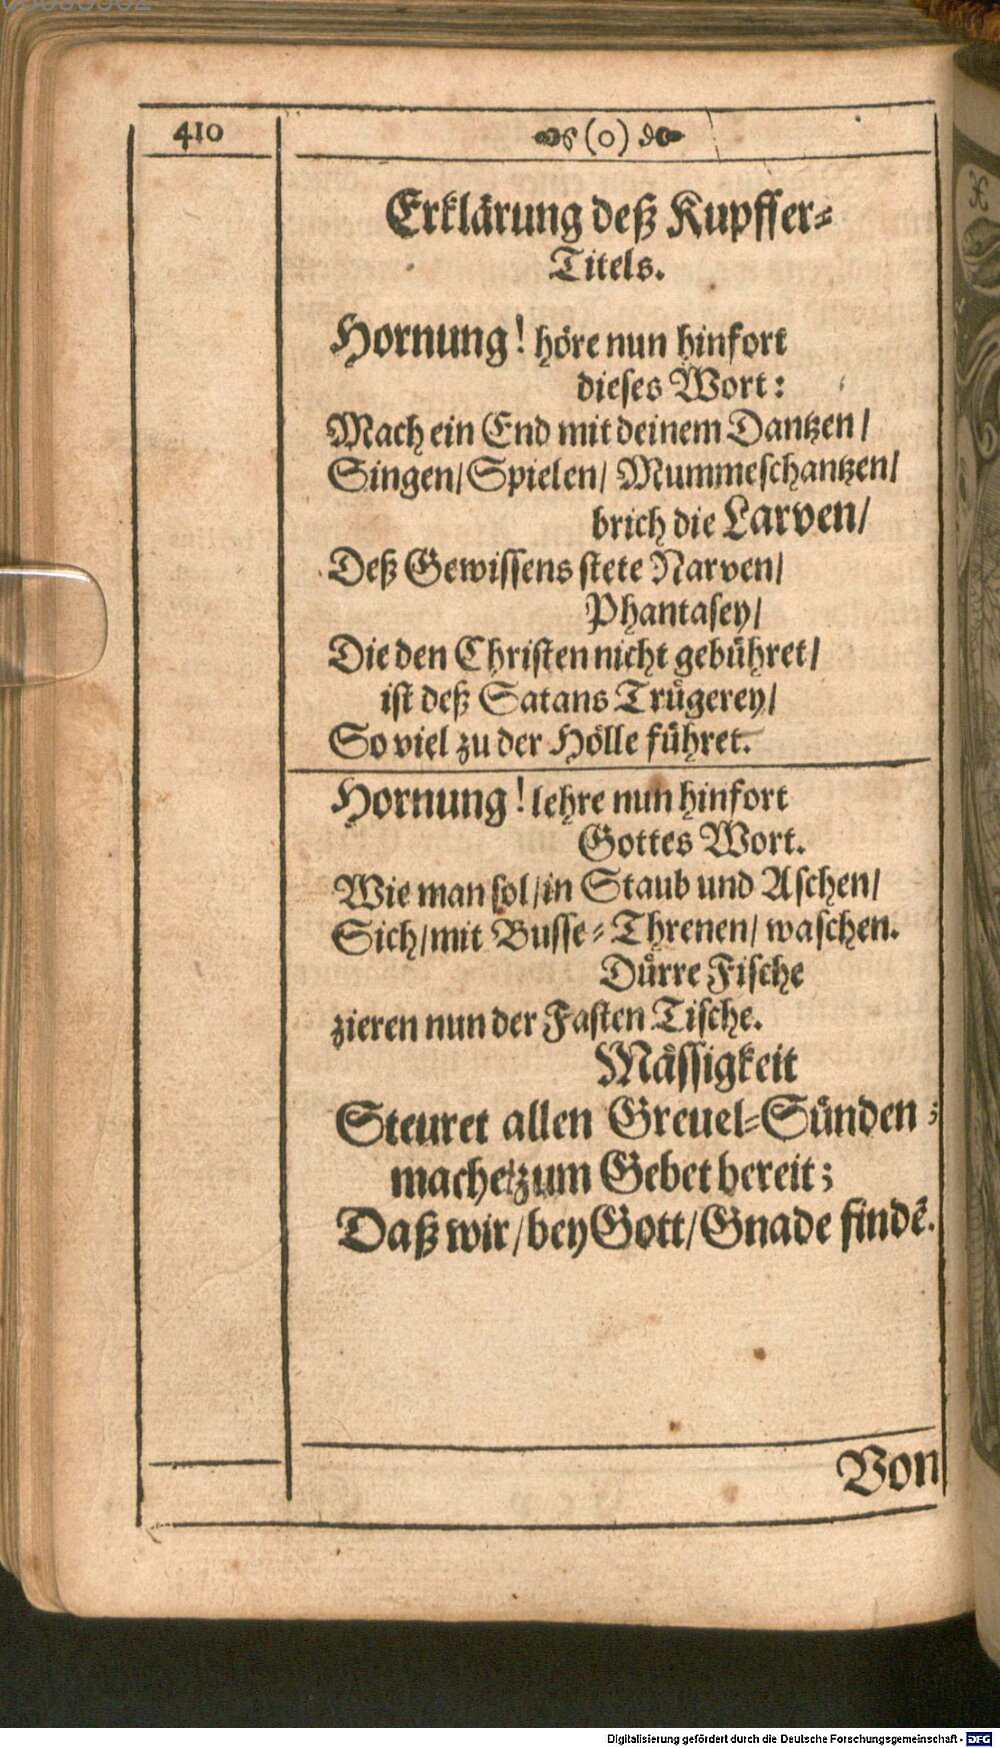 410
(o)
Erklärung deß Kupffer-
Titels.
Hornung! höre nun hinfort
dieses Wort:
Mach ein End mit deinem Dantzen/
Singen/ Spielen/ Mummeschantzen/
brich die Larven/
Deß Gewissens stete Narven/
Phantasey/
Die den Christen nicht gebühret/
ist deß Satans Trügerey/
So viel zu der Hölle führet.
Hornung! lehre nun hinfort
Gottes Wort.
Wie man sol/ in Staub und Aschen/
Sich/ mit Busse-Threnen/ waschen.
Dürre Fische
zieren nun der Fasten Tische.
Mässigkeit
Steuret allen Greuel-Sünden;
machet zum Gebet bereit;
Daß wir/ bey Gott/ Gnade findē.
Von
Digitalisierung gefördert durch die Deutsche Forschungsgemeinschaft - DFG